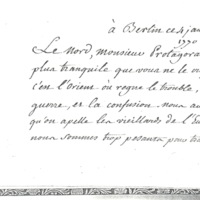 à Berlin ce 4 jan
1770
Le Nord, monsieur Protagora
plus tranquile que vous ne le
c'en l'Orient où regne le trouble,
guerre, et la confusion. nous au
qu'on apelle les vieillards de l'Eu
nous sommes trop pesants pour